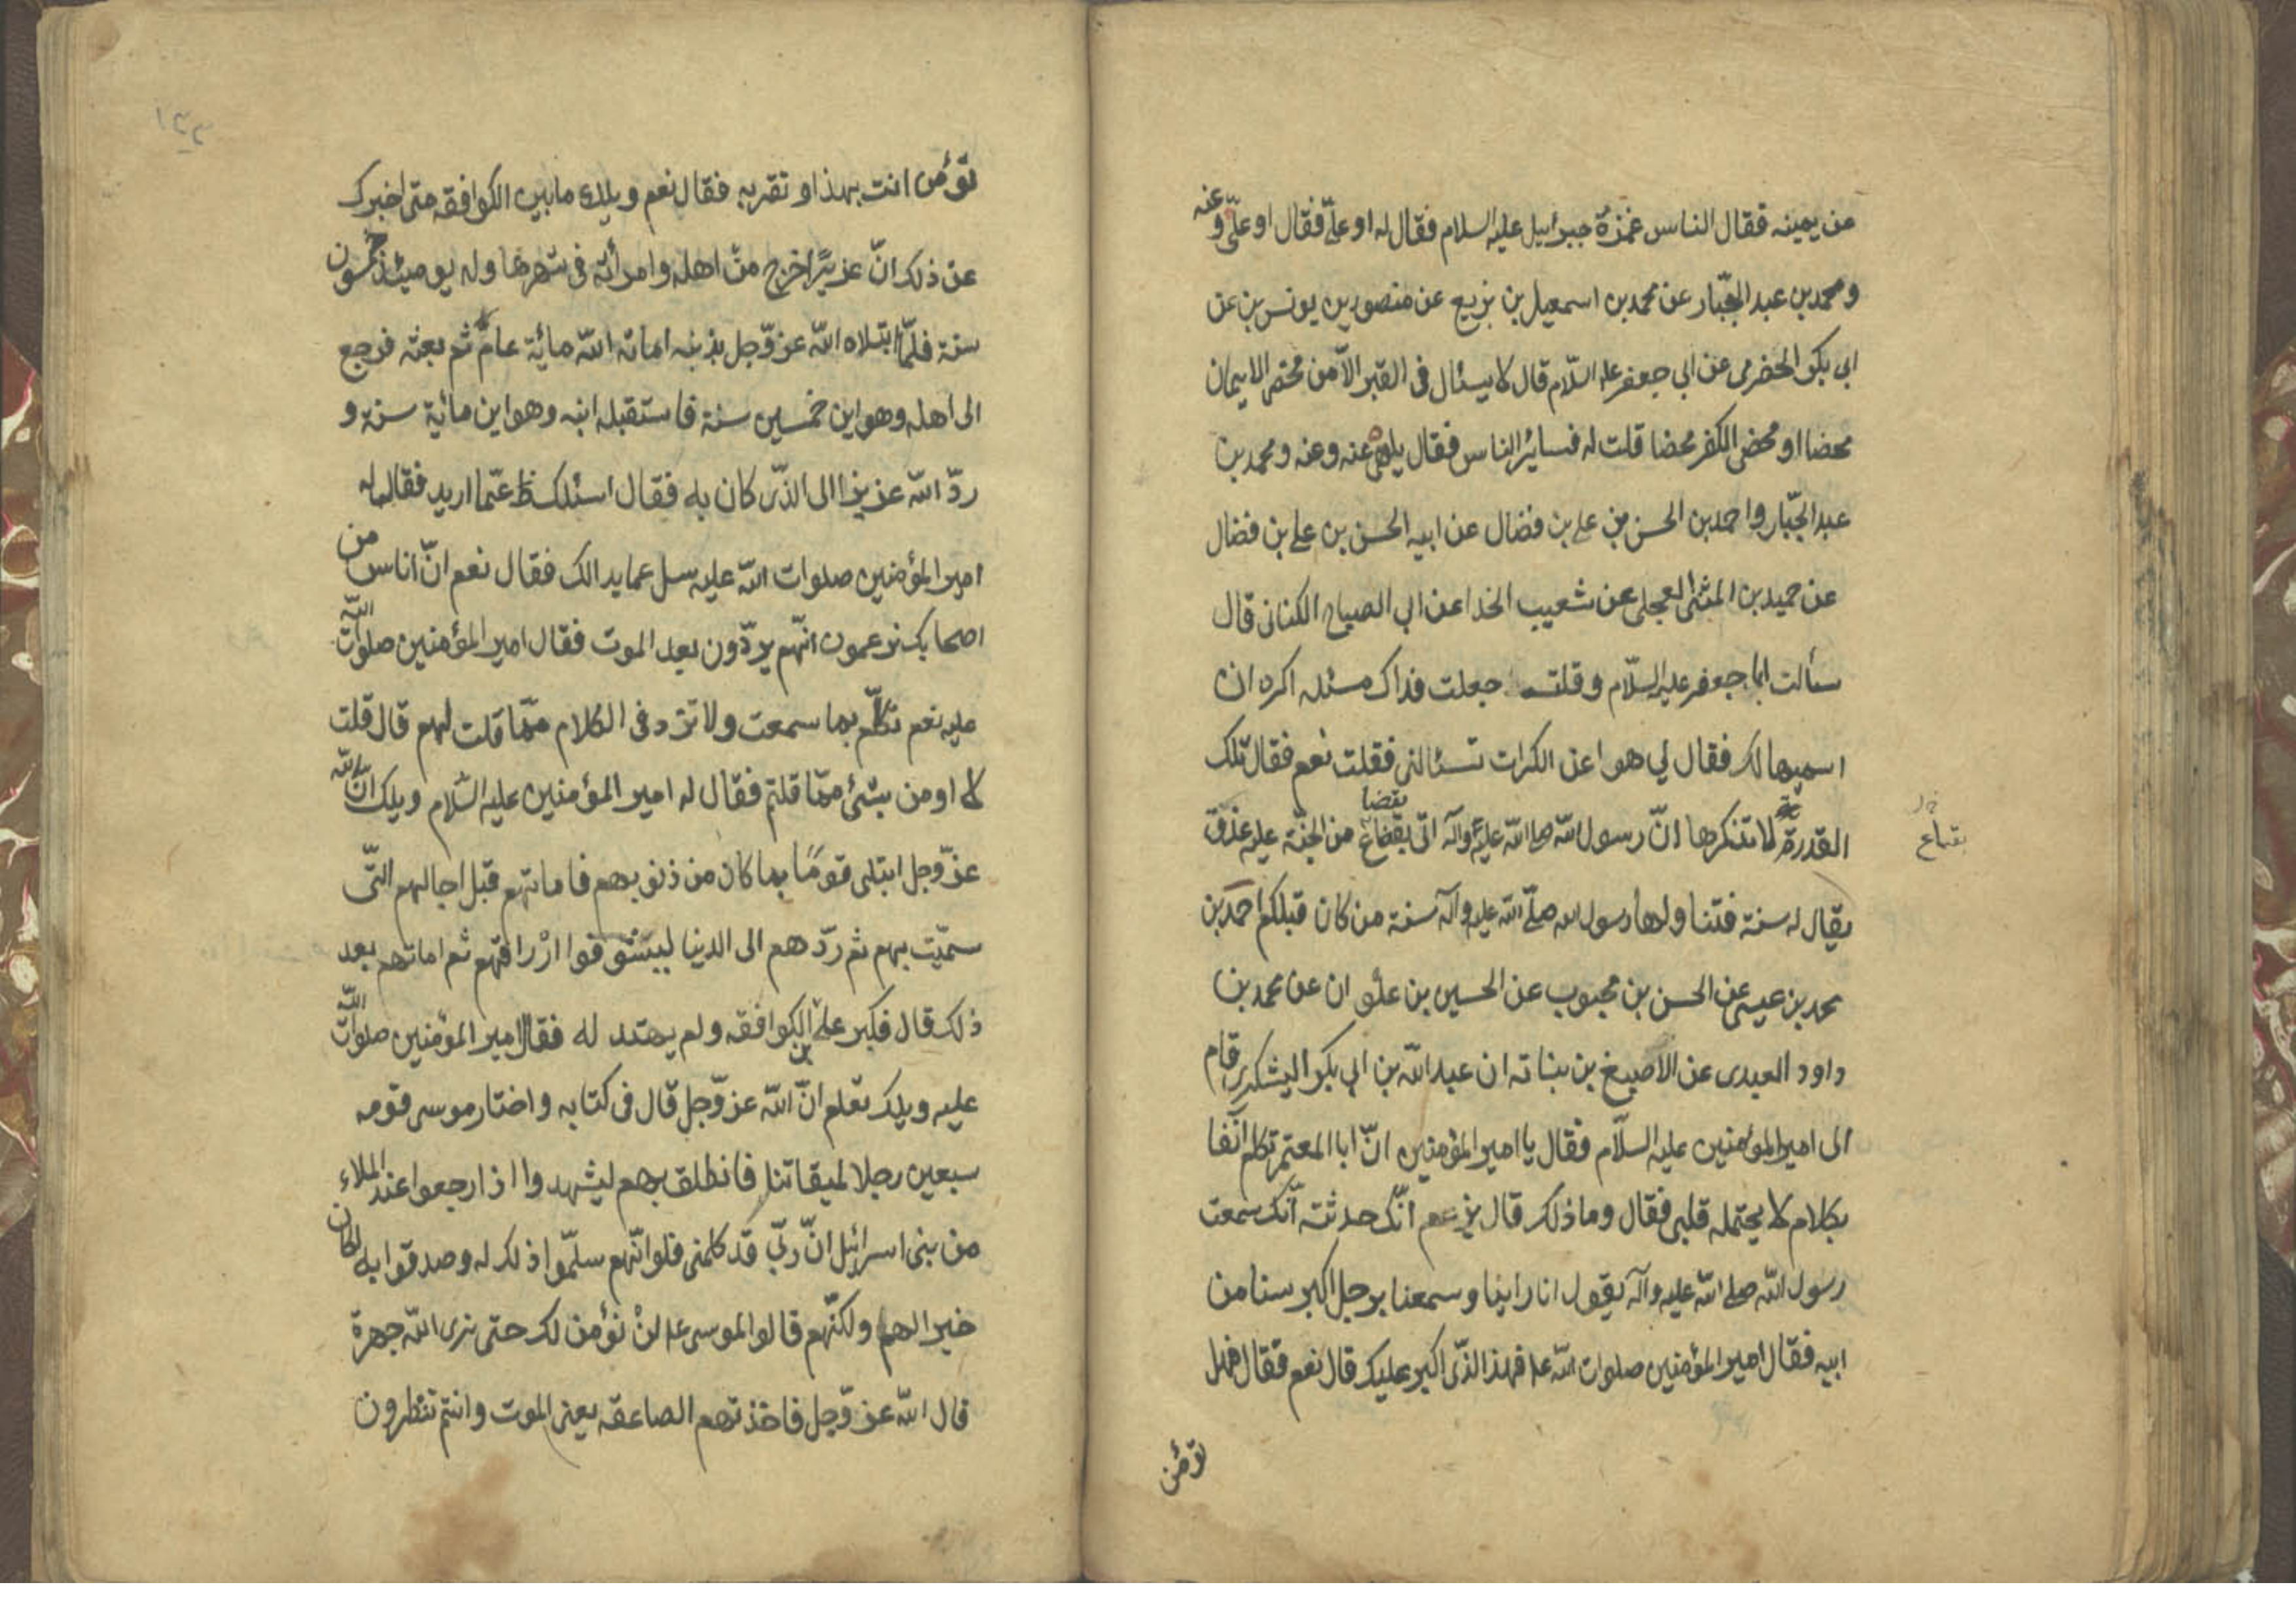 من يمينه فقال الناس غمزة جبرائيل عليه السلام فقال له او عليّ فقال او عليّ وعنه
و محمد بن عبد الجبّار عن محمد بن اسمعيل بن بزيع عن منصور بن يونس بن عن
ابي بكر الحضرمى عن ابي جعفر عليه السّلام قال لا يسئال فى القبر الاّ من محّض الايمان
محضا او محض الكفر محضا قلت له فساير الناس فقال يلهى عنه وعنه و محمد بن
عبد الجبّار واحمد بن الحسن بن على بن فضال عن ابيه الحسن بن على بن فضال
عن حميد بن المثنى العجلى عن شعيب الخدا عن ابى الصباح الكنانى قال
سألت ابا جعفر عليه السّلام وقلت جعلت فداك مسئله اكره ان
اسميها لك فقال لي هو اعن الكرات تسئالنى فقلت نعم فقال تلك
القدرة لا تنكرها انّ رسول اللّه صلى اللّه عليه وآله اتى بقضاع من الجنّة عليه عذق
بقضا
بقباع
يقال له سنة فتنا ولها رسول الله صلّى اللّه عليه وآله سنة من كان قبلكم احمد بن
محمد بن عيسى عن الحسن بن محبوب عن الحسين بن علوان عن محمد بن
داود العبدى عن الاصبغ بن نباته ان عبد اللّه بن ابي بكر اليشكرى قام
الى امير المؤمنين عليه السلّام فقال يا امير المؤمنين انّ ابا المعتمر تكلم آنّفا
بكلام لا يحتمله قلبى فقال وما ذلك قال يزعم انّك حدثته انّك سمعت
رسول اللّه صلى اللّه عليه وآله يقول انا راينا وسمعنا برجل اكبر سنا من
ابيه فقال امير المؤمنين صلوات اللّه عليه فهذا الذّى اكبر عليك قال نعم فقال فهل
تؤمن
١٢٢
تؤمن انت بهذا و تقر به فقال نعم ويلك يا بن الكوا افقه حتى اخبرك
عن ذلك انّ عزيرًا خرج من اهله وامرأته فى شهرها وله يومئذ خمسون
سنة فلمّا ابتلاه اللّه عزّوجل بذنبه اماته اللّه مائة عام ثم بعثه فرجع
الى اهله وهو ابن خمسين سنة فاستقبله ابنه وهو ابن مائية سنة و
ردّ اللّه عزيزا الى الذّى كان به فقال اسئلك عمّا اريد فقال له
امير المؤمنين صلوات اللّه عليه سل عما يدا لك فقال نعم انّ اناس من
اصحابك يزعمون انّهم يردّون بعد الموت فقال امير المؤمنين صلوات اللّه
عليه نعم تكلّم بما سمعت ولا تزد فى الكلام ممّا قلت لهم قال قلت
لا اومن بشئ ممّا قلتم فقال له امير المؤمنين عليه السّلام ويلك انّ اللّه
عزّوجل ابتلى قومًا بما كان من ذنوبهم فاماتهم قبل اجالهم التّى
سميّت بهم ثم ردّهم الى الدنيا ليستوفوا ارْزاقهم ثم اماتهم بعد
ذلك قال فكبر على بن الكوا افقه ولم يهتد له فقال امير المؤمنين صلوات اللّه
عليه ويلك تعلم انّ اللّه عزّوجل قال فى كتابه واختار موسى قومه
سبعين رجلا لميقاتنا فانطلق بهم ليشهدوا اذا رجعوا عند الملاء
من بنى اسرائيل انّ ربّى قد كلمنى فلو انّهم سلمّوا ذلك له وصدقوا به لكان
خيرا لهم ولكنّهم قالوا لموسى لنْ نؤمن لك حتى نرى اللّه جهرة
قال اللّه عزّوجل فاخذتهم الصاعقه يعنى الموت وانتم تنظرون